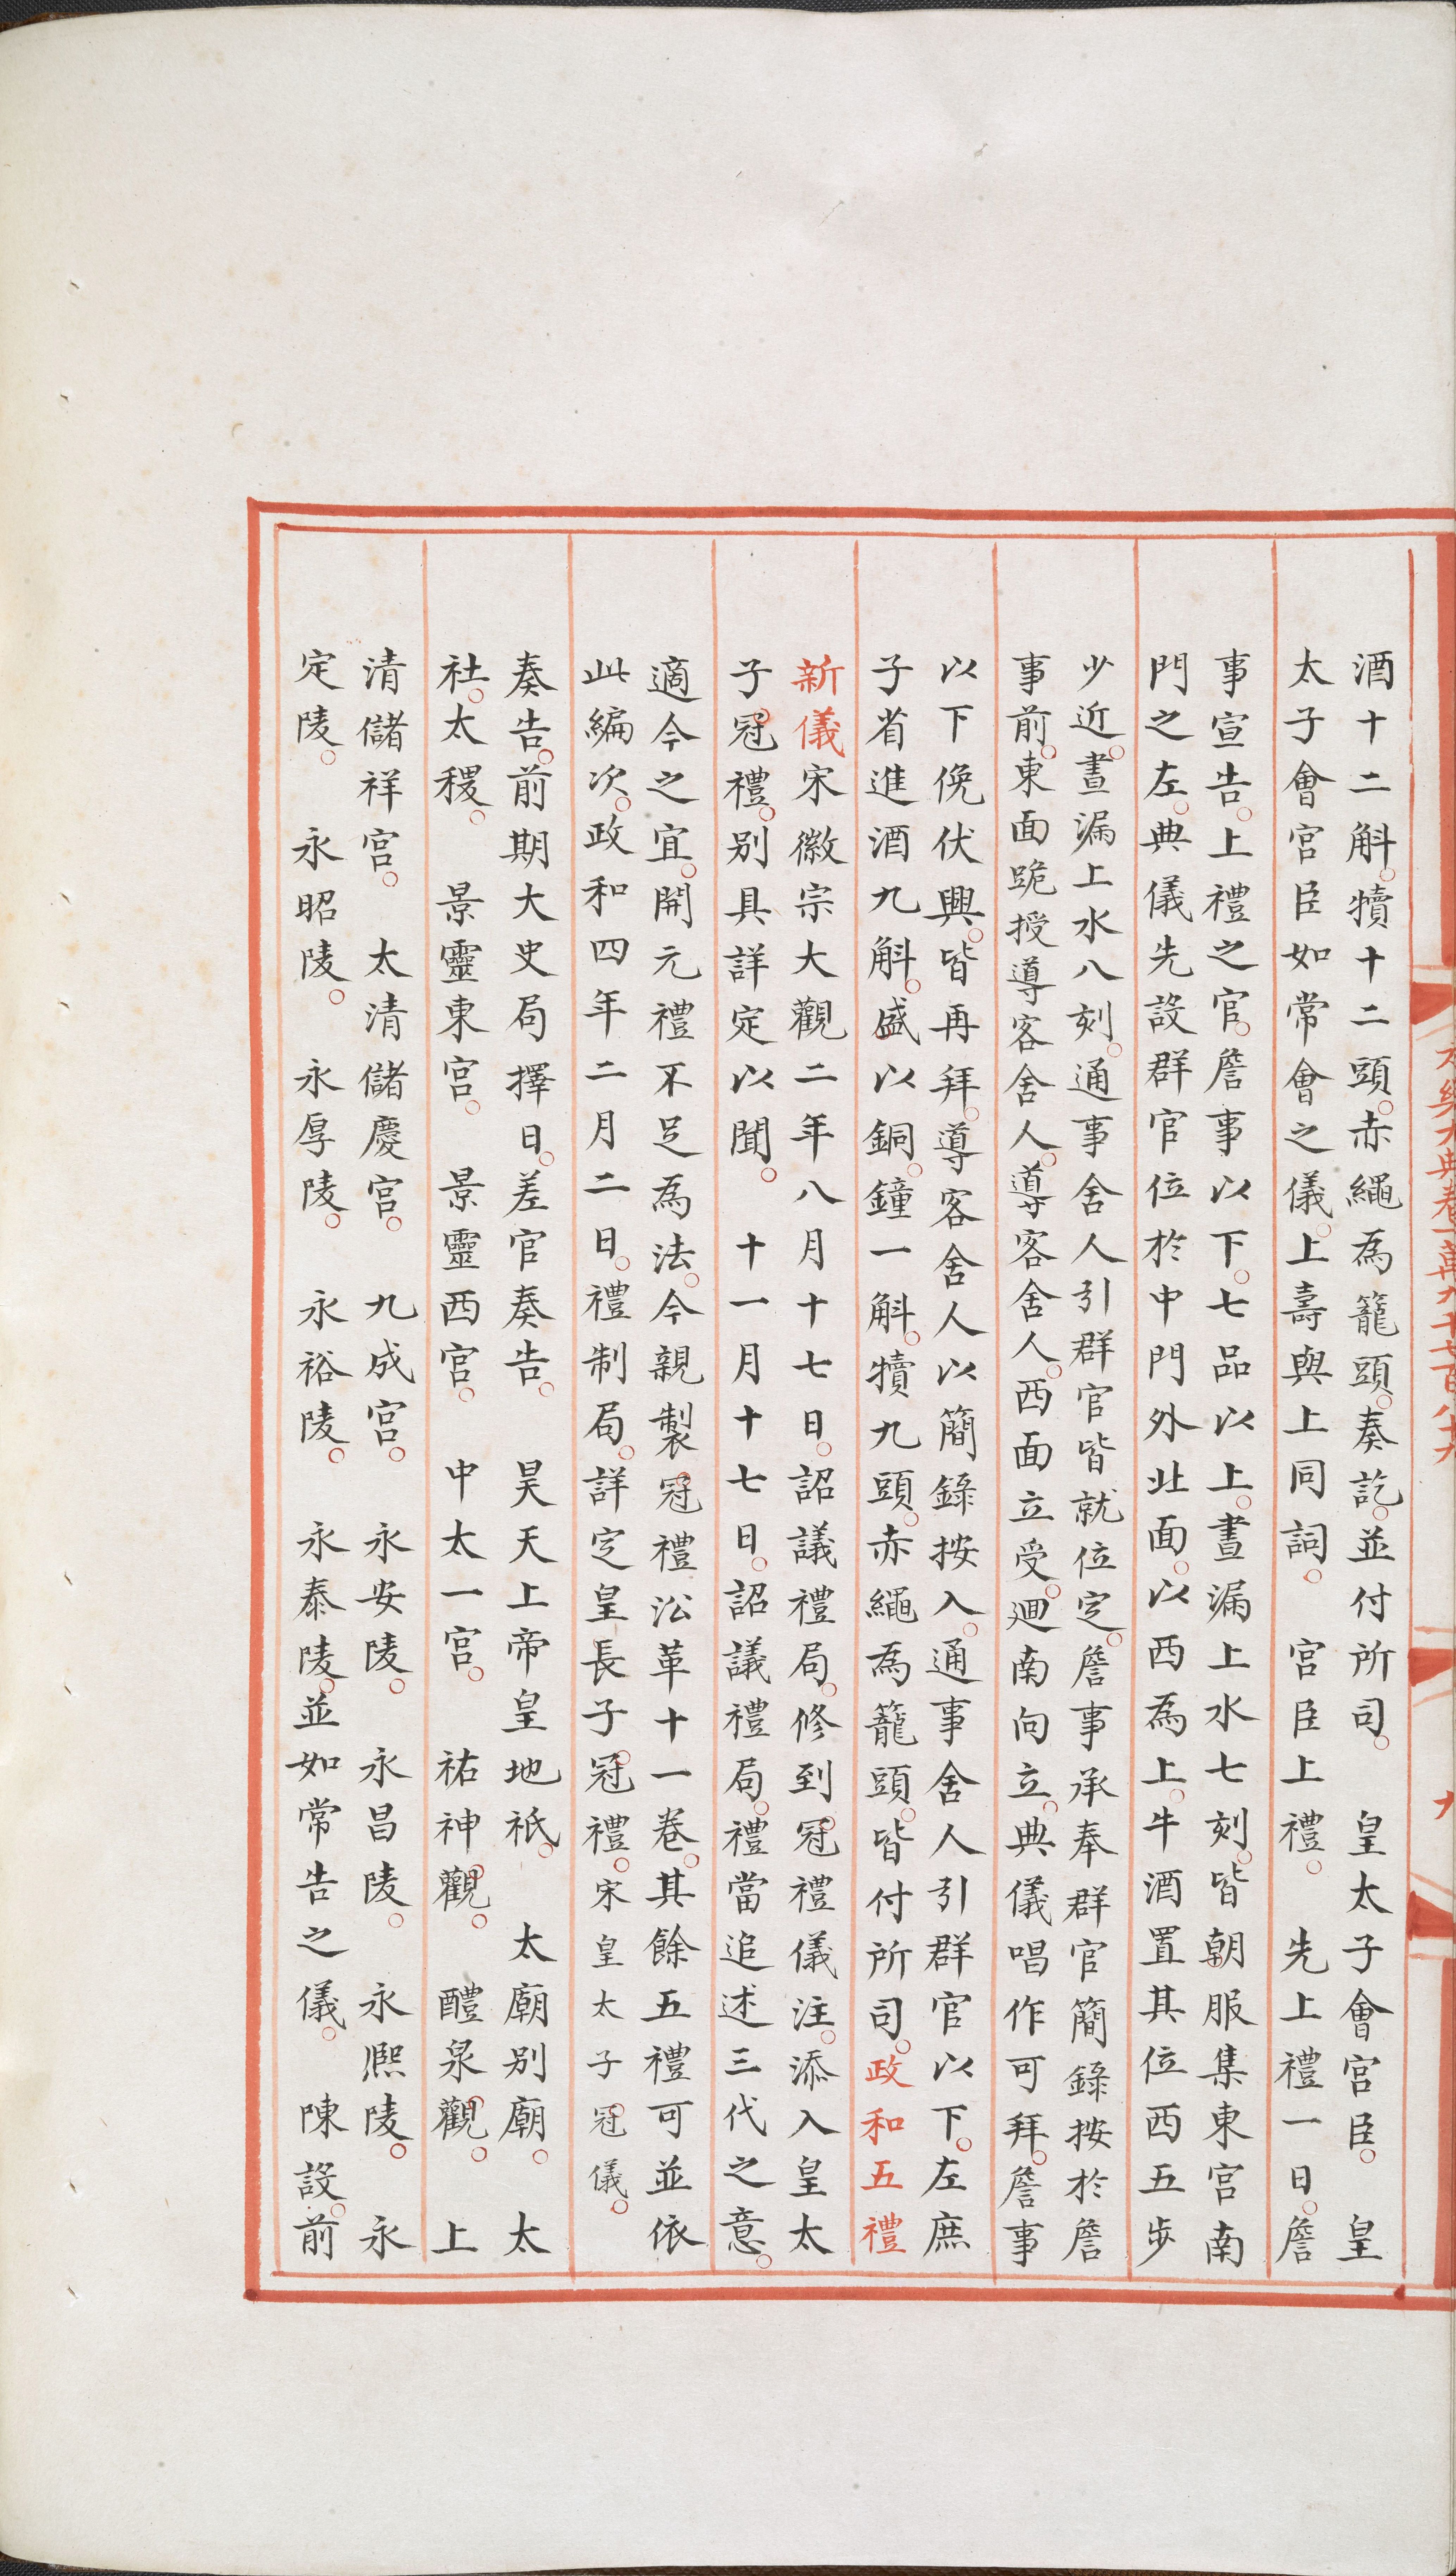 酒十二斛。犢十二頭。赤繩為籠頭。奏訖。並付所司。　皇太子會宮臣。　皇
太子會宮臣如常會之儀。上壽與上同詞。　宮臣上禮。　先上禮一日。詹
事宣告。上禮之官。詹事以下。七品以上。晝漏上水七刻。皆朝服集東宮南
門之左。典儀先設群官位於中門外北面。以西為上。牛酒置其位西五步
少近。晝漏上水八刻。通事舍人引群官皆就位定。詹事承奉群官簡錄按於詹
事前。東面跪授導客舍人。導客舍人。西面立受。迴南向立。典儀唱作可拜。詹事
以下俛伏興。皆再拜。導客舍人以簡錄按入。通事舍人引群官以下。左庶
子省進酒九斛。盛以銅。鐘一斛。犢九頭。赤繩為籠頭。皆付所司。政和五禮
新儀宋徽宗大觀二年八月十七日。詔議禮局。修到冠禮儀注。添入皇太
子冠禮。別具詳定以聞。　十一月十七日。詔議禮局。禮當追述三代之意。
適今之宜。開元禮不足為法。今親製冠禮沿革十一卷。其餘五禮可並依
此編次。政和四年二月二日。禮制局。詳定皇長子冠禮。宋皇太子冠儀。
奏告。前期大史局擇日。差官奏告。　昊天上帝皇地祇。　太廟別廟。　太
社。太稷。　景靈東宮。　景靈西宮。　中太一宮。　祐神觀。　醴泉觀。　上
清儲祥宮。　太清儲慶宮。　九成宮。　永安陵。　永昌陵。　永熙陵。　永
定陵。　永昭陵。　永厚陵。　永裕陵。　永泰陵。並如常告之儀。　陳設。前
永樂大典卷一萬九千七百八十九
九